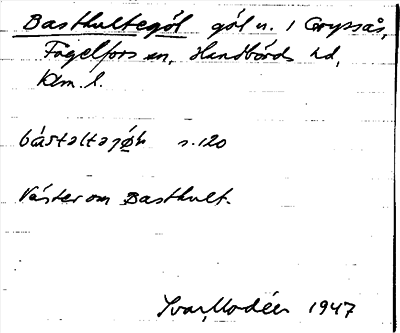 Basthultegöl göl u. 1 Gryssås,
Fågelfors sn, Handbörds hd,
Klm. l.
s. 120
Väster om Basthult.
Ivar Modéer 1947